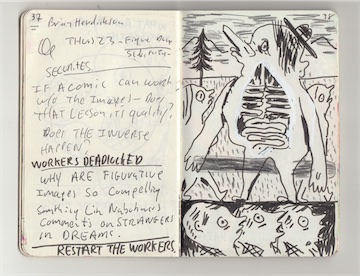 37
Brian Hendrickson
Thurs 23 - Figure Drawing
SECURITIES
IF A COMIC can work
w/o the Images - Does
THAT LESSON ITS QUALITY?
DOES THE INVERSE
HAPPEN?
WORKERS DEADLOCKED
WHY ARE FIGURATIVE
Images So Compelling
Something Like Nabokov's
Comments on STRANGERS
IN DREAMS.
RESTART THE WORKERS
38